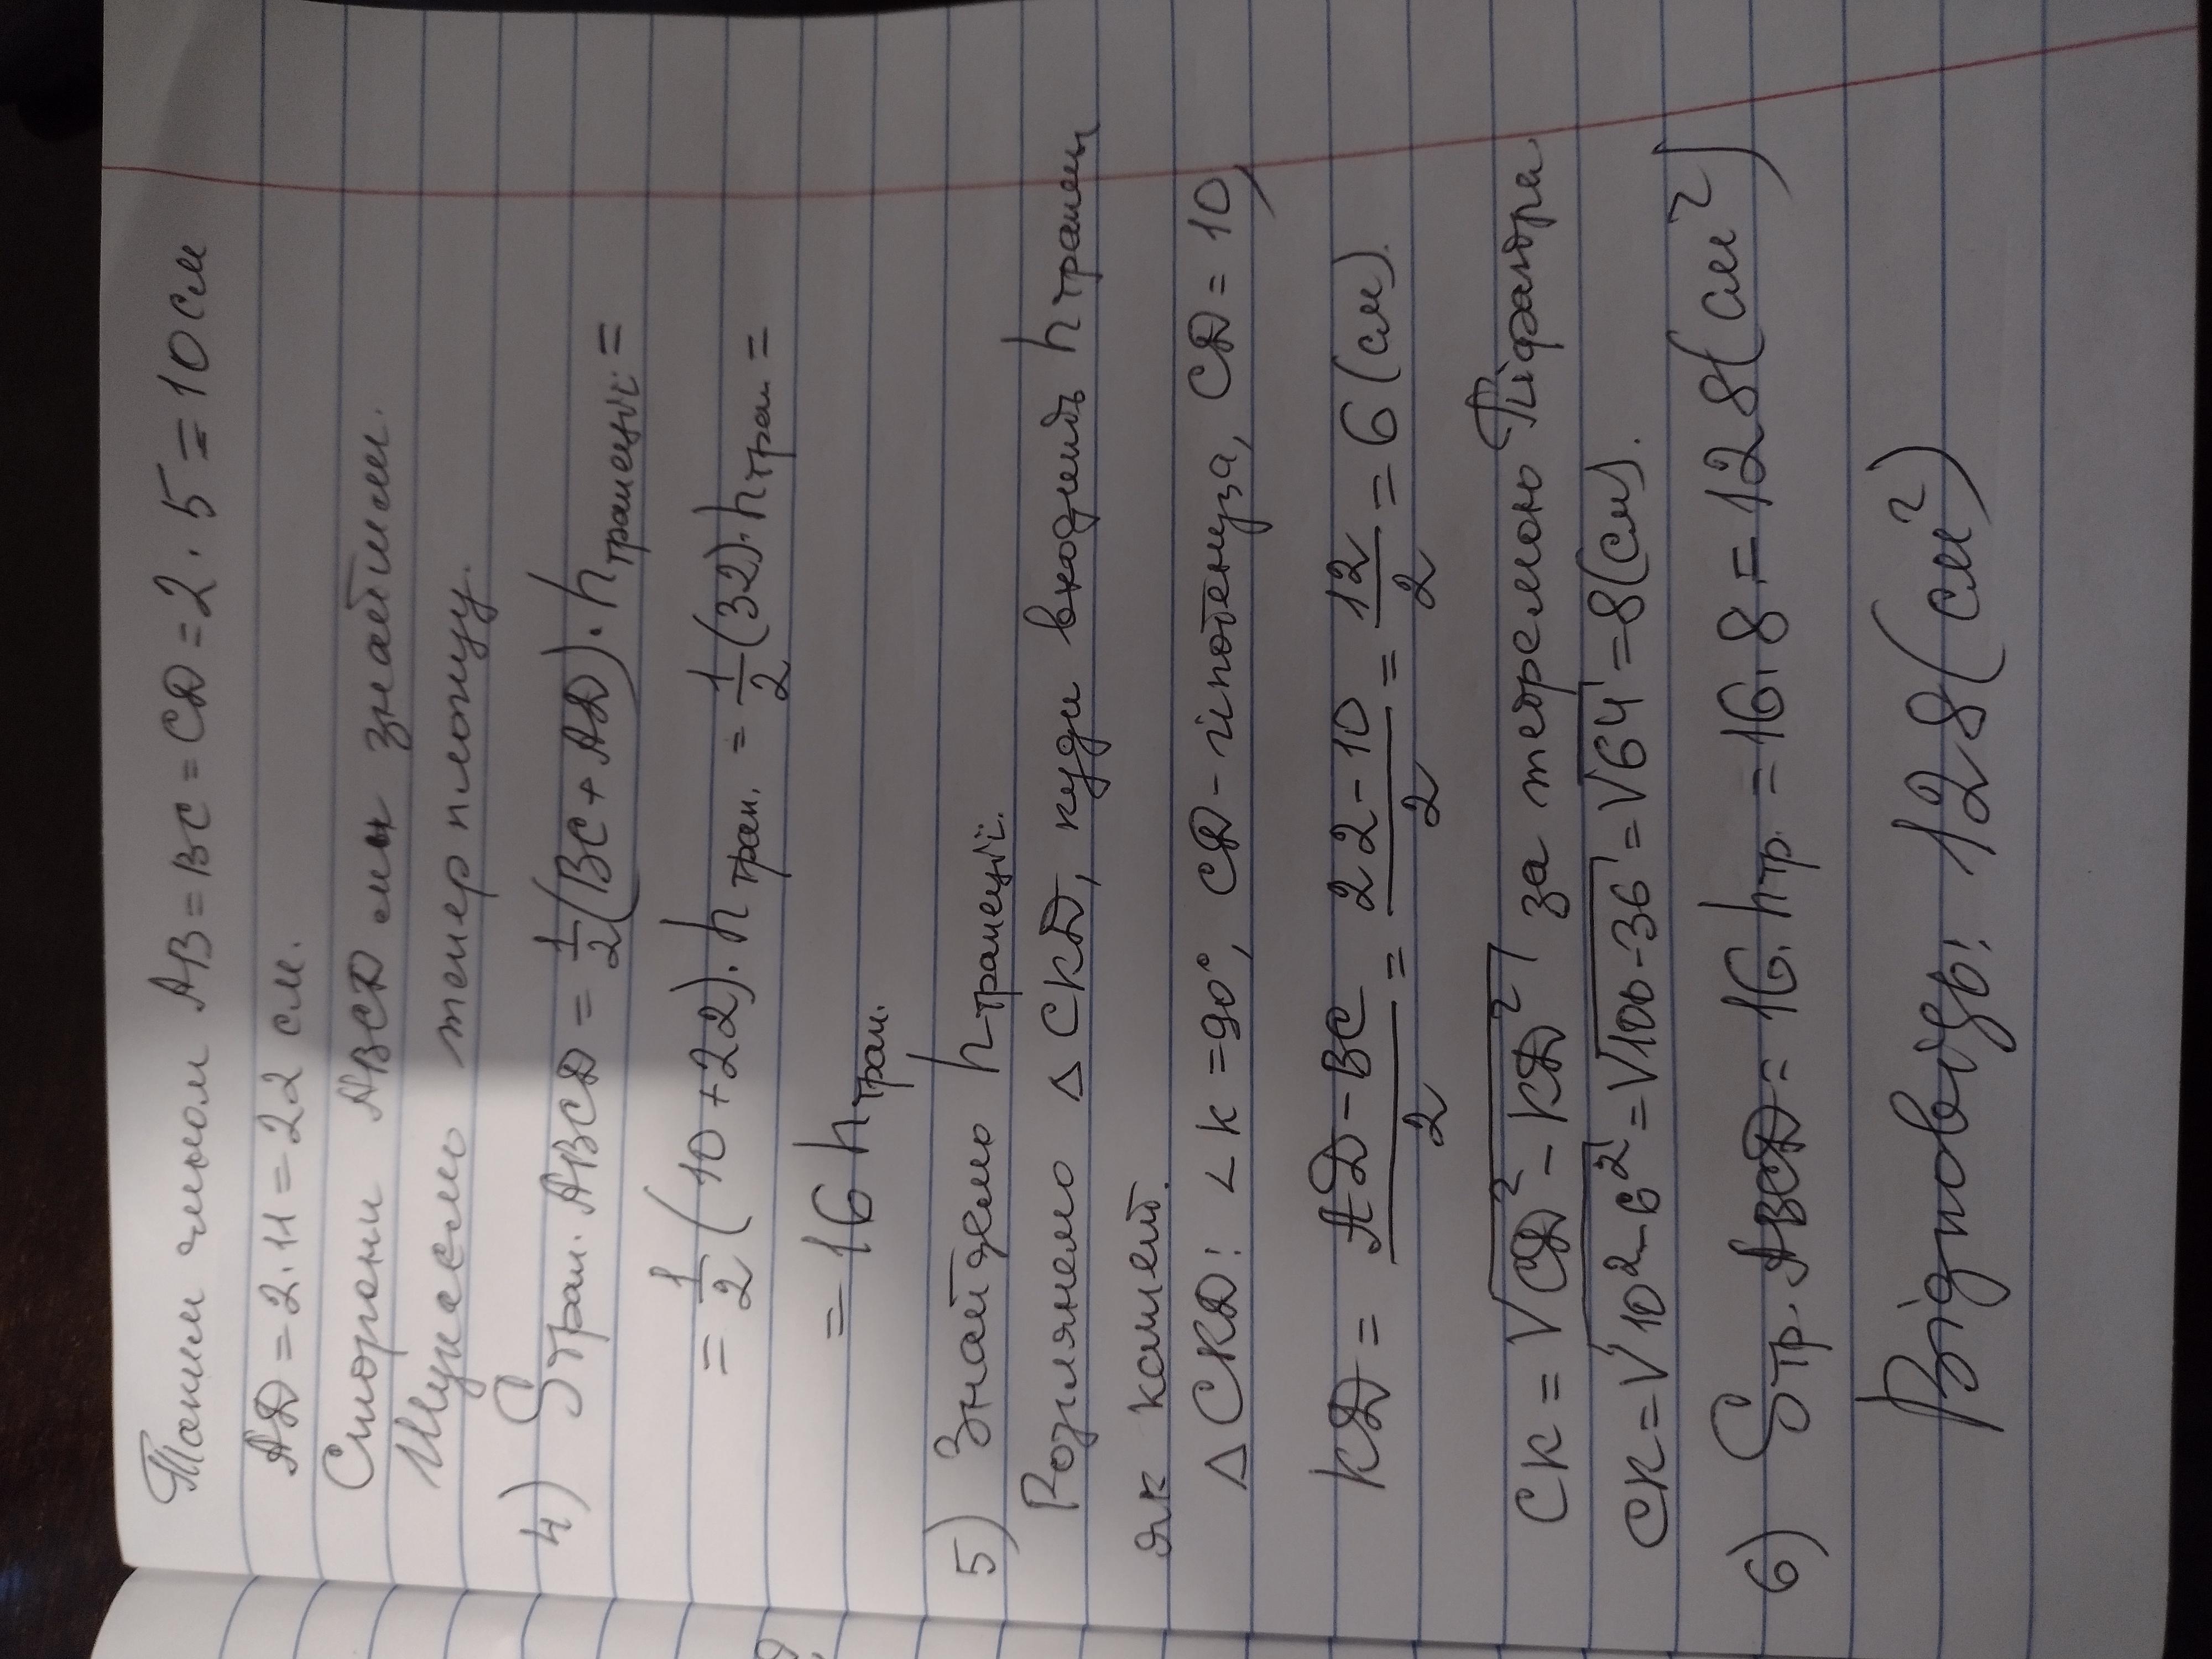 Таким чином AB = BC = CD = 2 · 5 = 10 см
AD = 2 · 11 = 22 см.
Сторони ABCD ми знайшли.
Шукаємо тепер площу.
4) Sтрап. ABCD = 1/2 (BC + AD) · hтрапеції =
= 1/2 (10 + 22) · hтрап. = 1/2 (32) · hтрап =
= 16 hтрап.
5) Знайдемо hтрапеції.
Розглянемо △CKD, куди входить hтрапец
як катет.
△CKD: ∠K = 90°, CD - гіпотенуза, CD = 10,
KD = (AD - BC)/2 = (22 - 10)/2 = 12/2 = 6 (см).
CK = √(CD² - KD²) за теоремою Піфагора
CK = √(10² - 6²) = √(100 - 36) = √64 = 8 (см).
6) Sтр. ABCD = 16 · hтр. = 16 · 8 = 128 (см²)
Відповідь: 128 (см²)